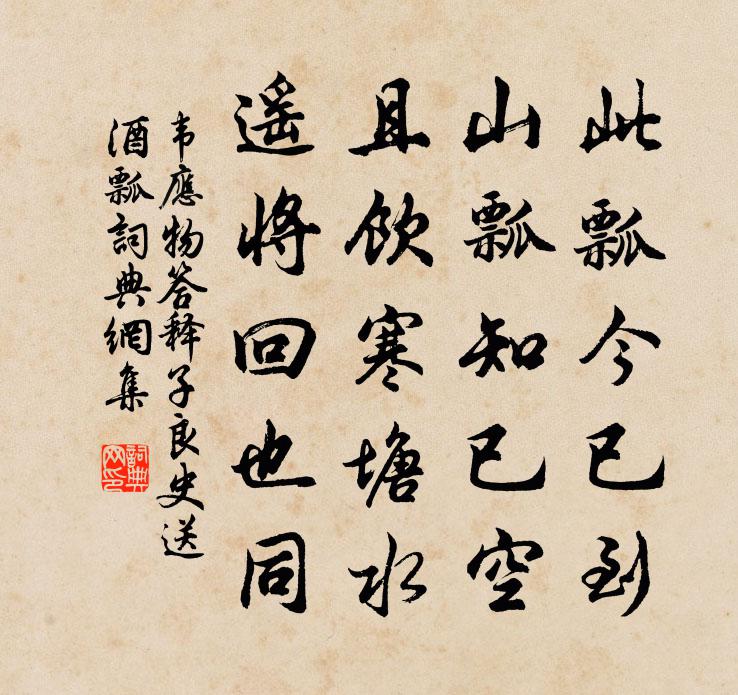 此瓢今已到
山瓢知已空
且饮寒塘水
遥将回也同
韦應物答释子良史送
酒瓢詞典網集
詞典
网印